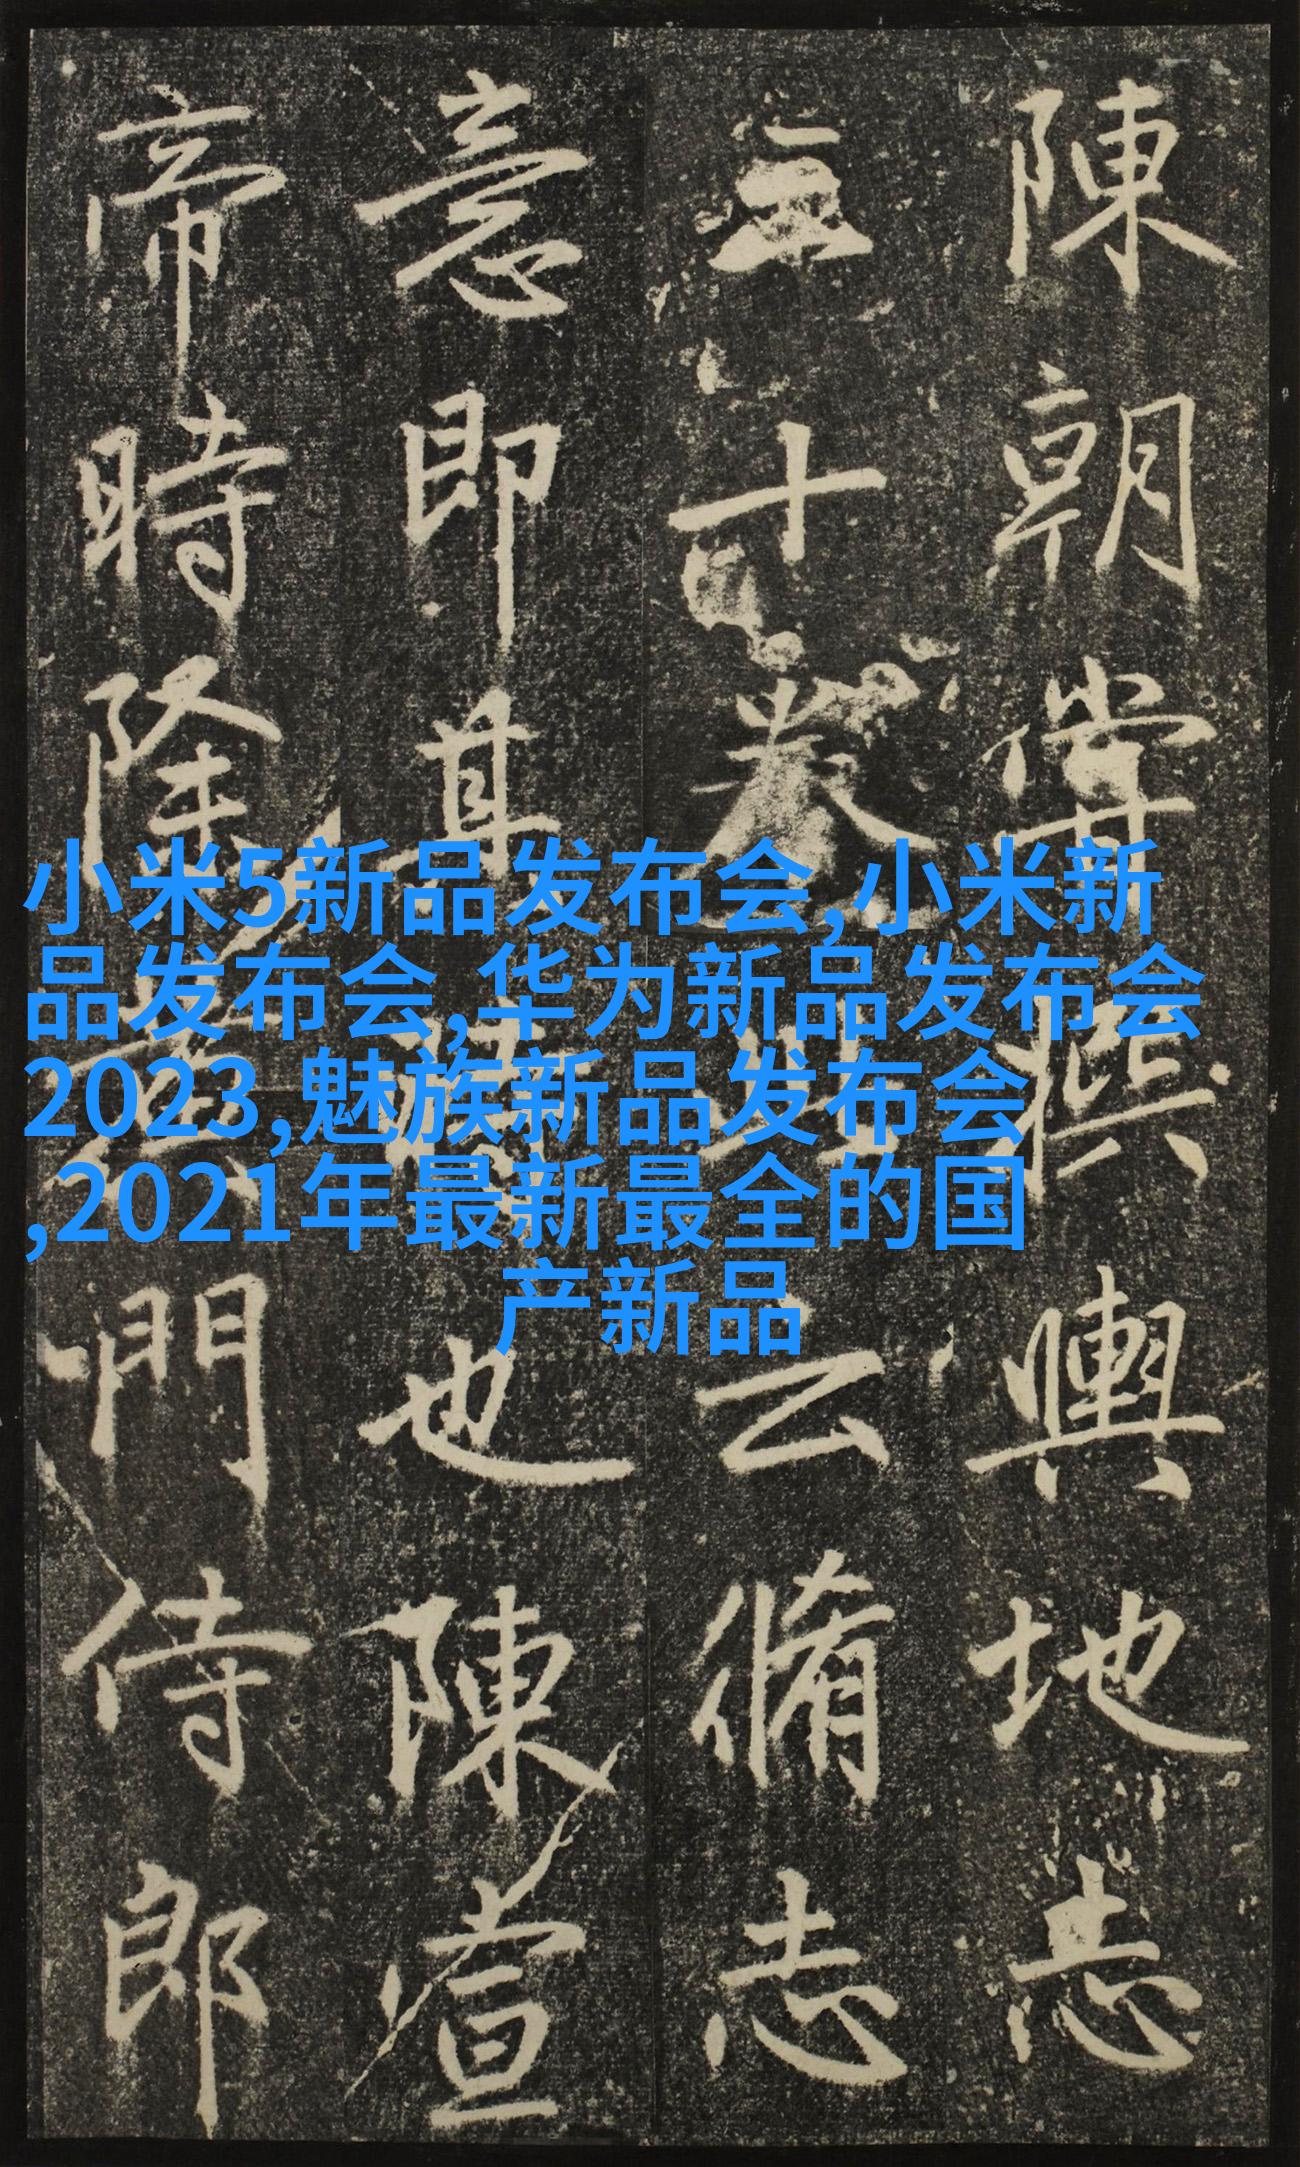 陳朝嘗撰輿地志
三十卷云脩志
意即其也陳宣
帝時除黃門侍郎
小米5新品发布会,小米新
品发布会,华为新品发布会
2023,魅族新品发布会
,2021年最新最全的国
产新品